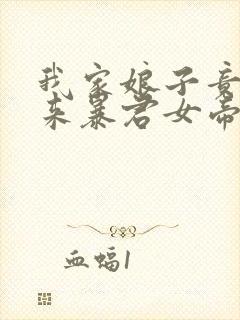 我家娘子竟
来暴君女帝
血蝠1